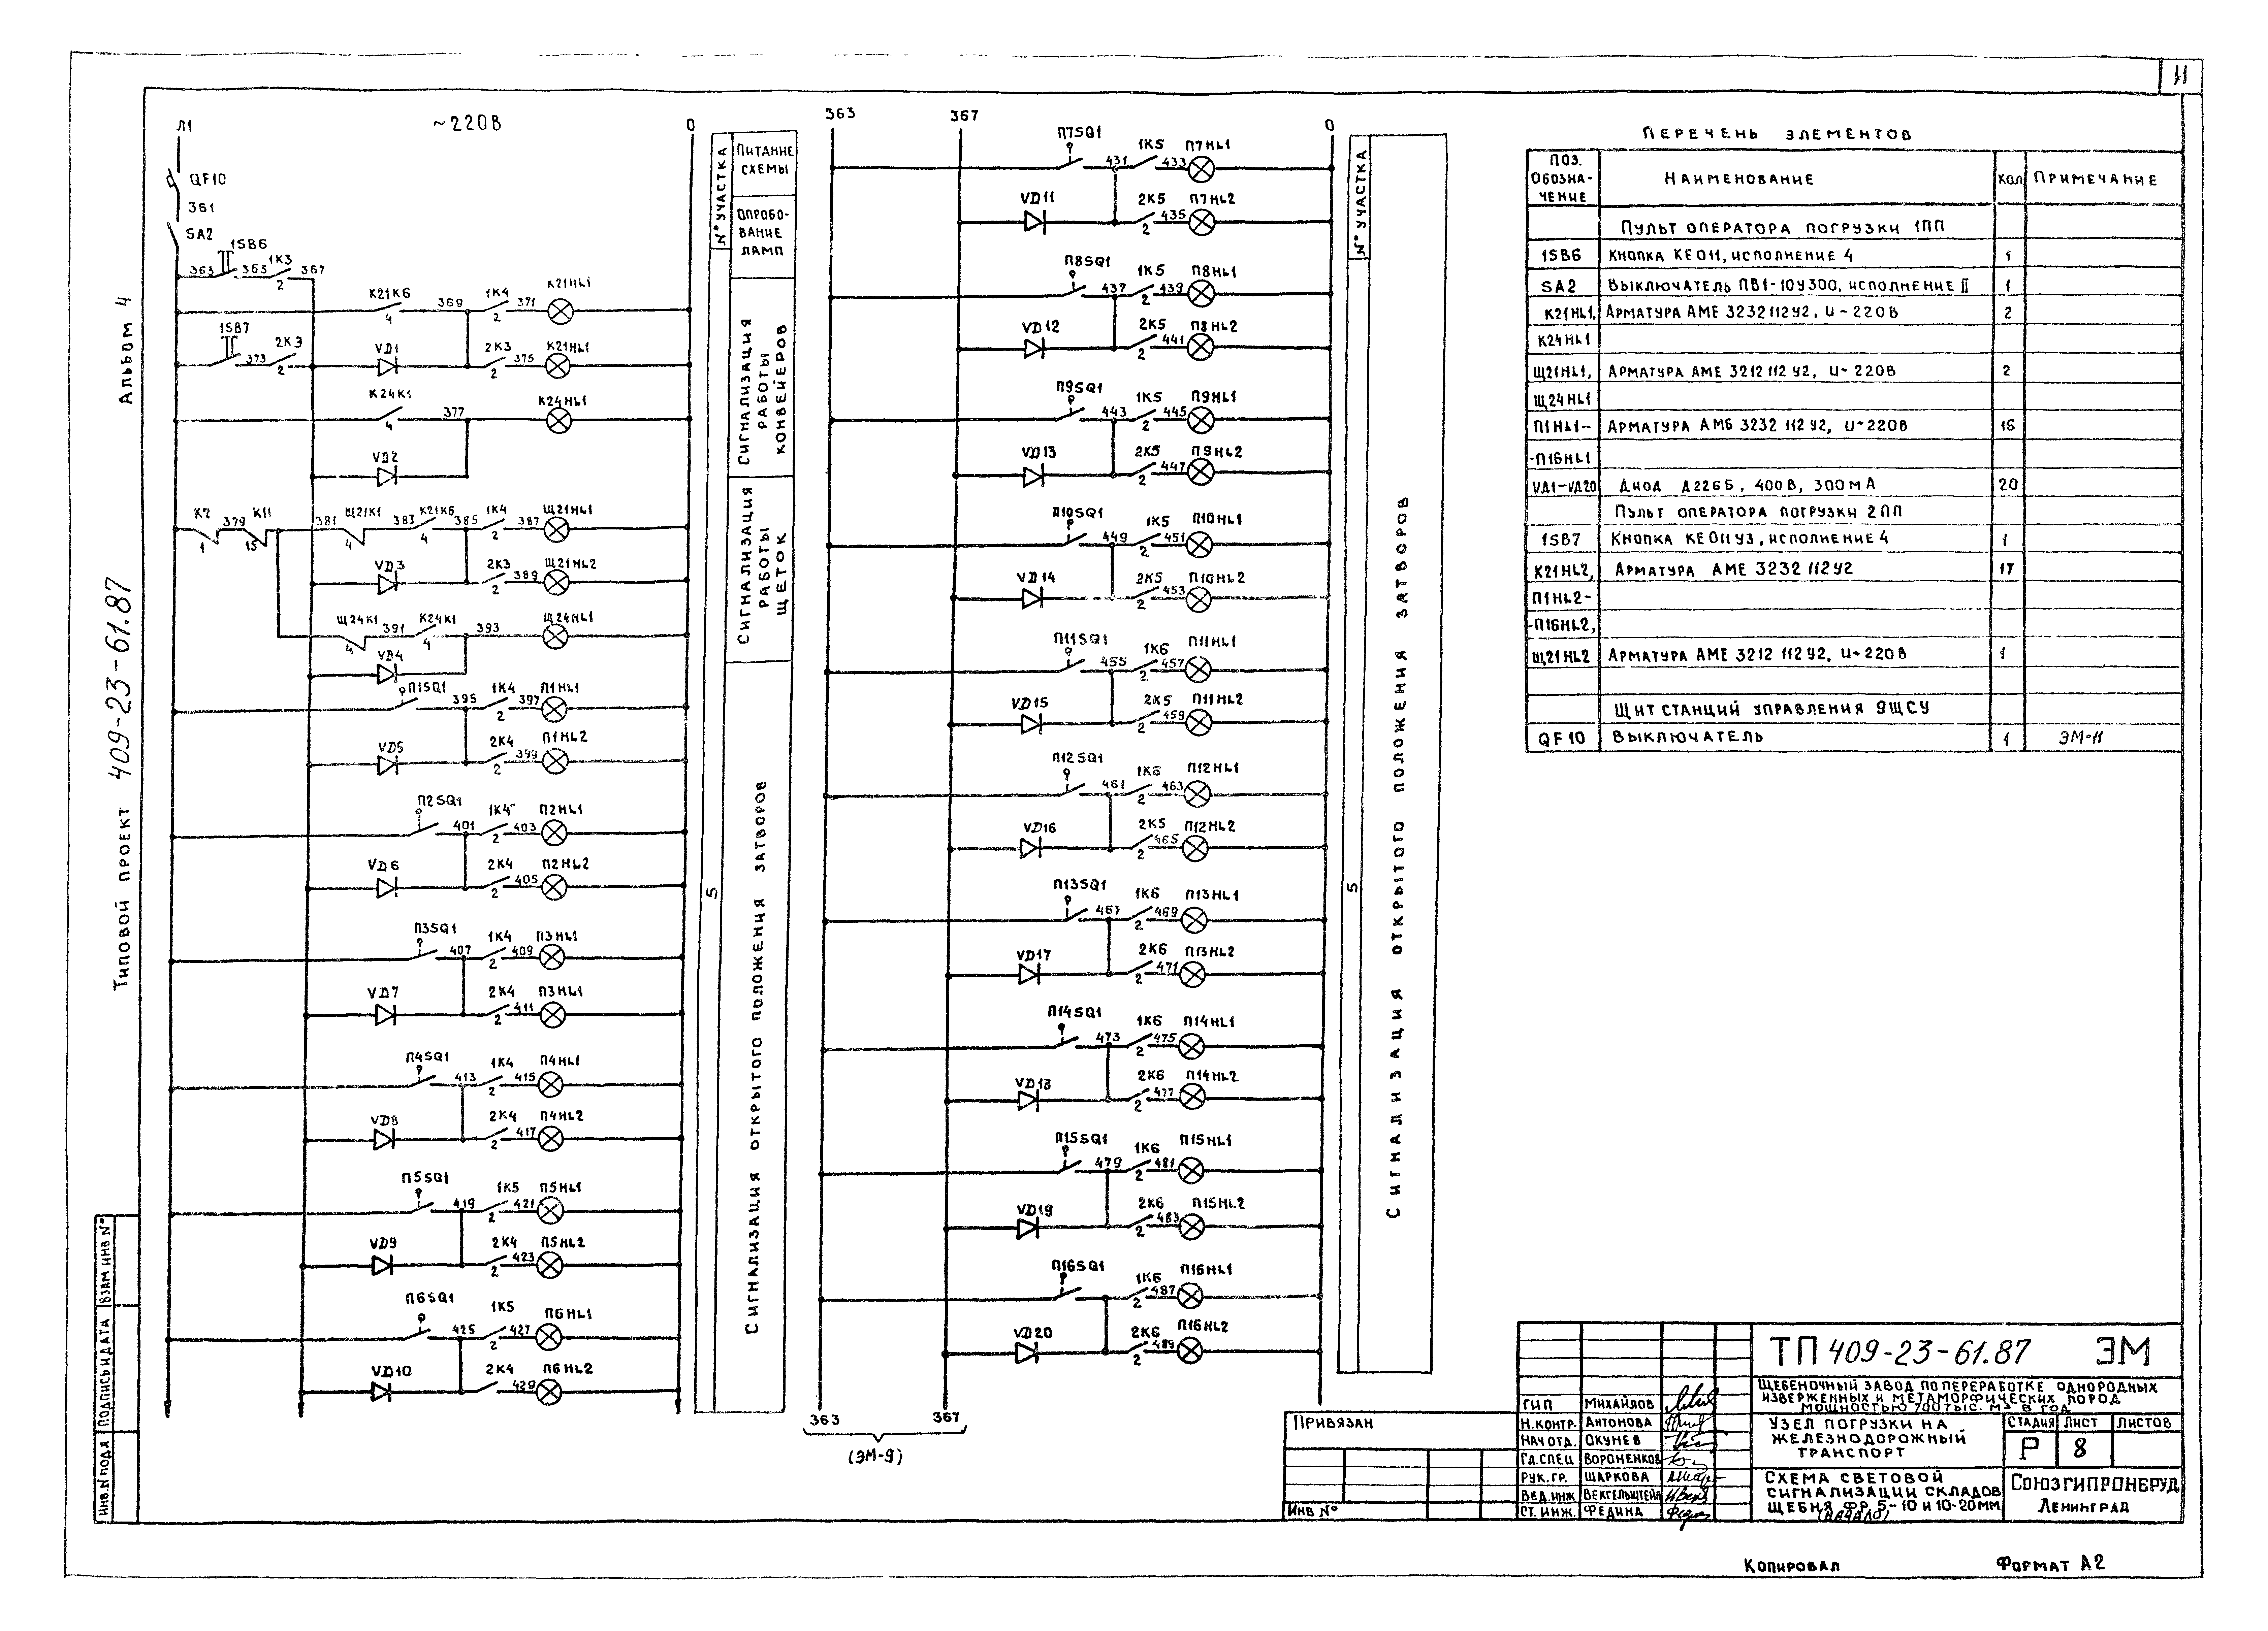 11
Альбом 4
Типовой проект 409-23-61.87
Л1
~220В
0
QF10
361
SA2
1SB6
1К3
363
365
367
2
К21К6
369
1К4
371
К21HL1
4
2
1SB7
373
2К3
2
VD1
2К3
375
К21HL1
2
К24К1
377
К24HL1
4
VD2
К7
379
К11
381
Щ21К1
383
К21К6
385
1К4
387
Щ21HL1
1
15
4
4
2
VD3
2К3
389
Щ21HL2
2
Щ24К1
391
К24К1
393
Щ24HL1
4
4
VD4
П1SQ1
395
1К4
397
П1HL1
2
VD5
2К4
399
П1HL2
2
П2SQ1
401
1К4
403
П2HL1
2
VD6
2К4
405
П2HL2
2
П3SQ1
407
1К4
409
П3HL1
2
VD7
2К4
411
П3HL1
2
П4SQ1
413
1К4
415
П4HL1
2
VD8
2К4
417
П4HL2
2
П5SQ1
419
1К5
421
П5HL1
2
VD9
2К4
423
П5HL2
2
П6SQ1
425
1К5
427
П6HL1
2
VD10
2К4
429
П6HL2
N° участка
Питание схемы
Опробо-
вание
ламп
Сигнализация
работы
конвейеров
Сигнализация
работы
щеток
5
Сигнализация открытого положения затворов
363
367
0
П7SQ1
431
1К5
433
П7HL1
VD11
2К5
435
П7HL2
2
П8SQ1
437
1К5
439
П8HL1
2
VD12
2К5
441
П8HL2
2
П9SQ1
443
1К5
445
П9HL1
2
VD13
2К5
447
П9HL2
2
П10SQ1
449
1К5
451
П10HL1
2
VD14
2К5
453
П10HL2
2
П11SQ1
455
1К6
457
П11HL1
2
VD15
2К5
459
П11HL2
2
П12SQ1
461
1К6
463
П12HL1
2
VD16
2К5
465
П12HL2
2
П13SQ1
467
1К6
469
П13HL1
2
VD17
2К6
471
П13HL2
2
П14SQ1
473
1К6
475
П14HL1
2
VD18
2К6
477
П14HL2
2
П15SQ1
479
1К6
481
П15HL1
2
VD19
2К6
483
П15HL2
2
П16SQ1
1К6
487
П16HL1
2
VD20
2К6
489
П16HL2
2
363
367
(ЭМ-9)
N° участка
5
Сигнализация открытого положения затворов
Перечень элементов
Поз. обозна-чение Наименование Кол Примечание
Пульт оператора погрузки 1ПП
1SB6 Кнопка КЕ011, исполнение 4 1
SA2 Выключатель ПВ1-10У300, исполнение II 1
К21HL1, Арматура АМЕ 3232112У2, U~220В 2
К24HL1
Щ21HL1, Арматура АМЕ 3212112У2, U~220В 2
Щ24HL1
П1HL1- Арматура АМБ 3232 112У2, U~220В 16
-П16HL1
VД1-VД20 Диод Д226Б, 400В, 300мА 20
Пульт оператора погрузки 2ПП
1SB7 Кнопка КЕ011У3, исполнение 4 1
К21HL2, Арматура АМЕ 3232 112У2 17
П1HL2-
-П16HL2,
Щ21HL2 Арматура АМЕ 3212 112У2, U~220В 1
Щит станций управления 9ЩСУ
QF10 Выключатель 1 ЭМ-11
ТП 409-23-61.87 ЭМ
Щебеночный завод по переработке однородных
изверженных и метаморфических пород
мощностью 700 тыс. м3 в год
Узел погрузки на
железнодорожный
транспорт
Стадия Лист Листов
Р 8
Схема световой
сигнализации складов
щебня фр. 5-10 и 10-20мм
(начало)
Союзгипронеруд
Ленинград
ГИП Михайлов
Н.контр. Антонова
Нач.отд. Окунев
Гл.спец Вороненков
Рук.гр. Шаркова
Вед.инж. Вексельштейн
Ст.инж. Федина
Привязан
Инв N°
Инв. N° подл
Подпись и дата
Взам инв N°
Копировал
Формат А2